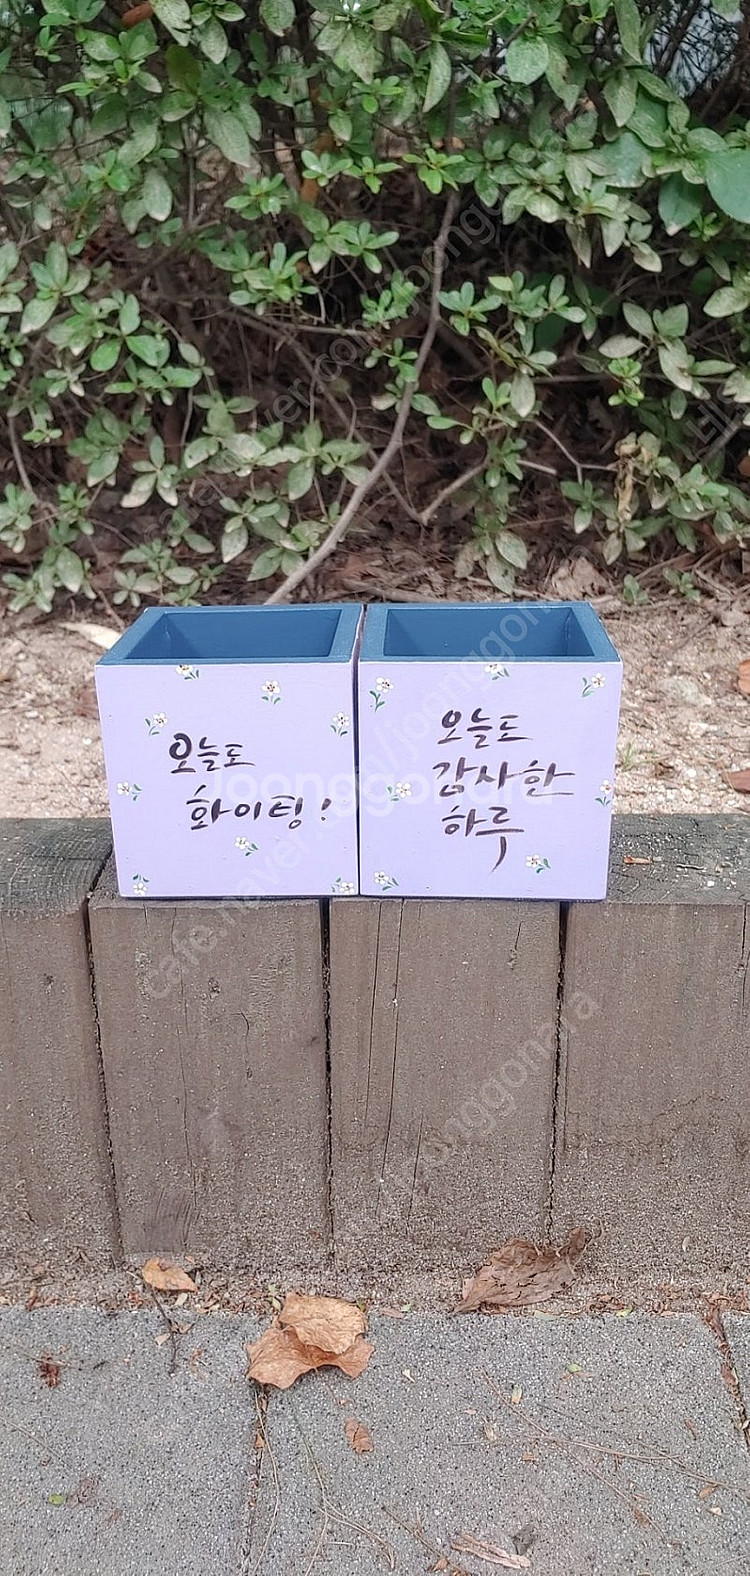 오늘도
화이팅!
오늘도
감사한
하루
joonggonara
cafe.naver.com/joonggonara